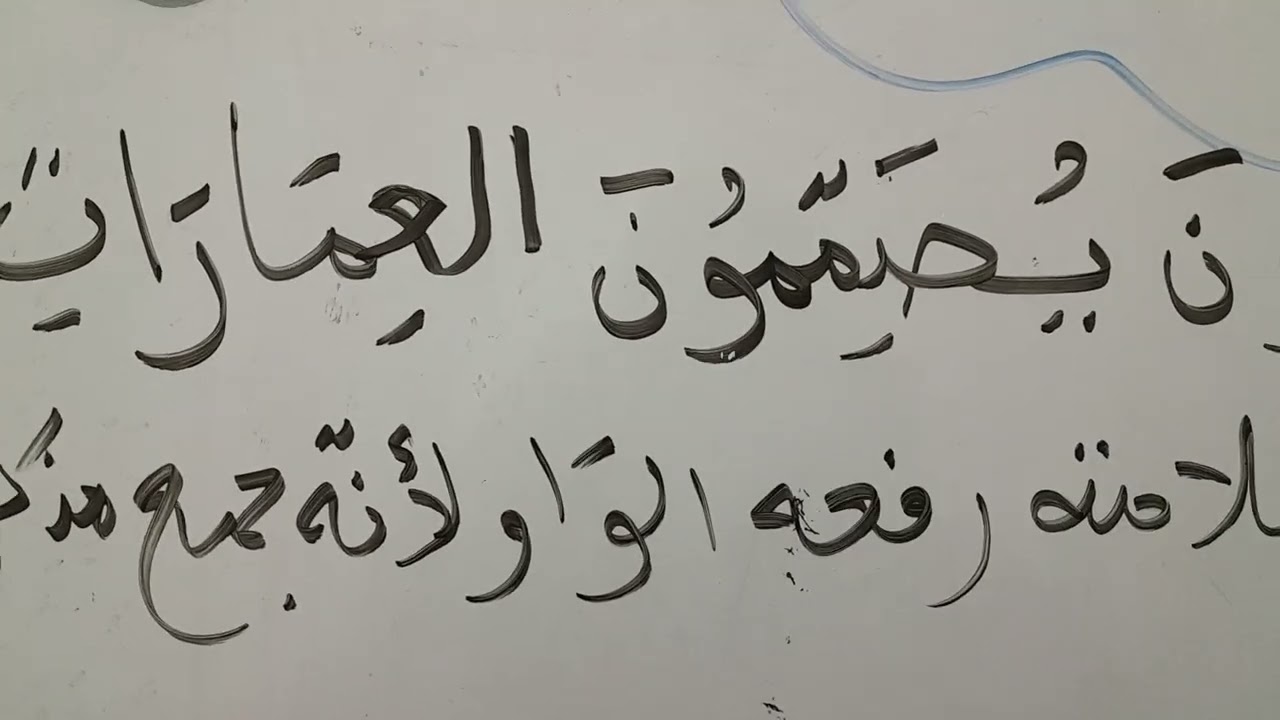 نَ يُصَمِّمُونَ العِمَارَاتِ
علامته رفعه الوَاو لأنّه جمع مذكر